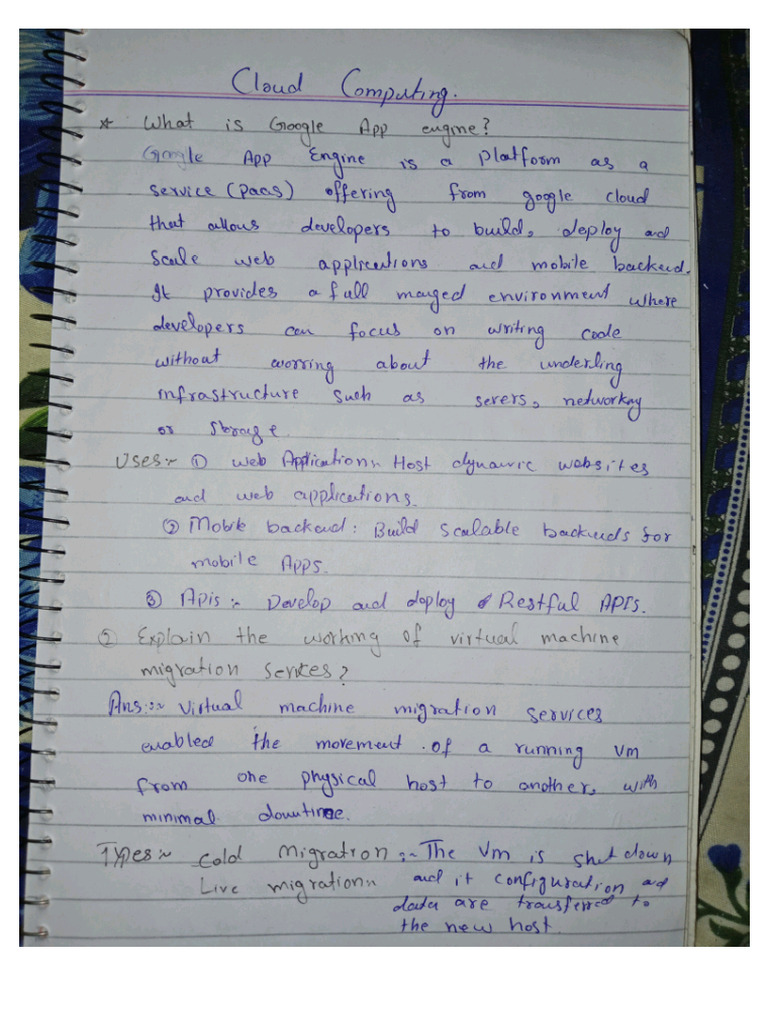 Cloud Computing.
* What is Google App engine?
Google App Engine is a Platform as a
service (paas) offering from google cloud
that allows developers to build, deploy and
Scale web applications and mobile backend.
It provides a full manged environment where
developers can focus on writing code
without worring about the underling
infrastructure such as servers, networkng
or storage
Uses:- ① web Application:- Host dynamic websites
and web applications.
② Mobile backend: Build Scalable backends for
mobile Apps.
③ Apis:- Develop and deploy Restful APIs.
② Explain the working of virtual machine
migration services?
Ans:- Virtual machine migration services
enabled the movement of a running VM
from one physical host to another, with
minimal downtime.
Types:- Cold Migration:- The Vm is shut down
Live migration:- and it configuration and
data are transferred to
the new host.